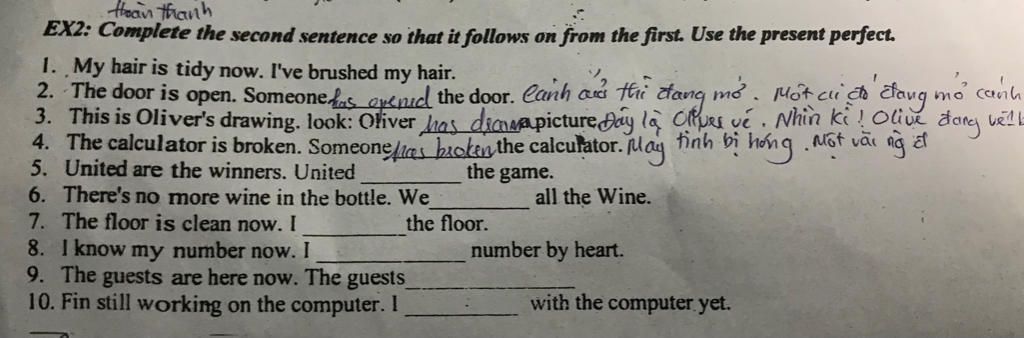 Hoàn thành
EX2: Complete the second sentence so that it follows on from the first. Use the present perfect.
1. My hair is tidy now. I've brushed my hair.
2. The door is open. Someone has opened the door. Cánh cửa thì đang mở. Một cái đó đang mở cánh
3. This is Oliver's drawing. look: Oliver has drawn a picture. Đây là Oliver vẽ. Nhìn kì! Olive đang vẽ
4. The calculator is broken. Someone has broken the calculator. Máy tính bị hỏng. Một vài ng
5. United are the winners. United ________ the game.
6. There's no more wine in the bottle. We ________ all the Wine.
7. The floor is clean now. I ________ the floor.
8. I know my number now. I ________ number by heart.
9. The guests are here now. The guests ________
10. Fin still working on the computer. I ________ with the computer yet.